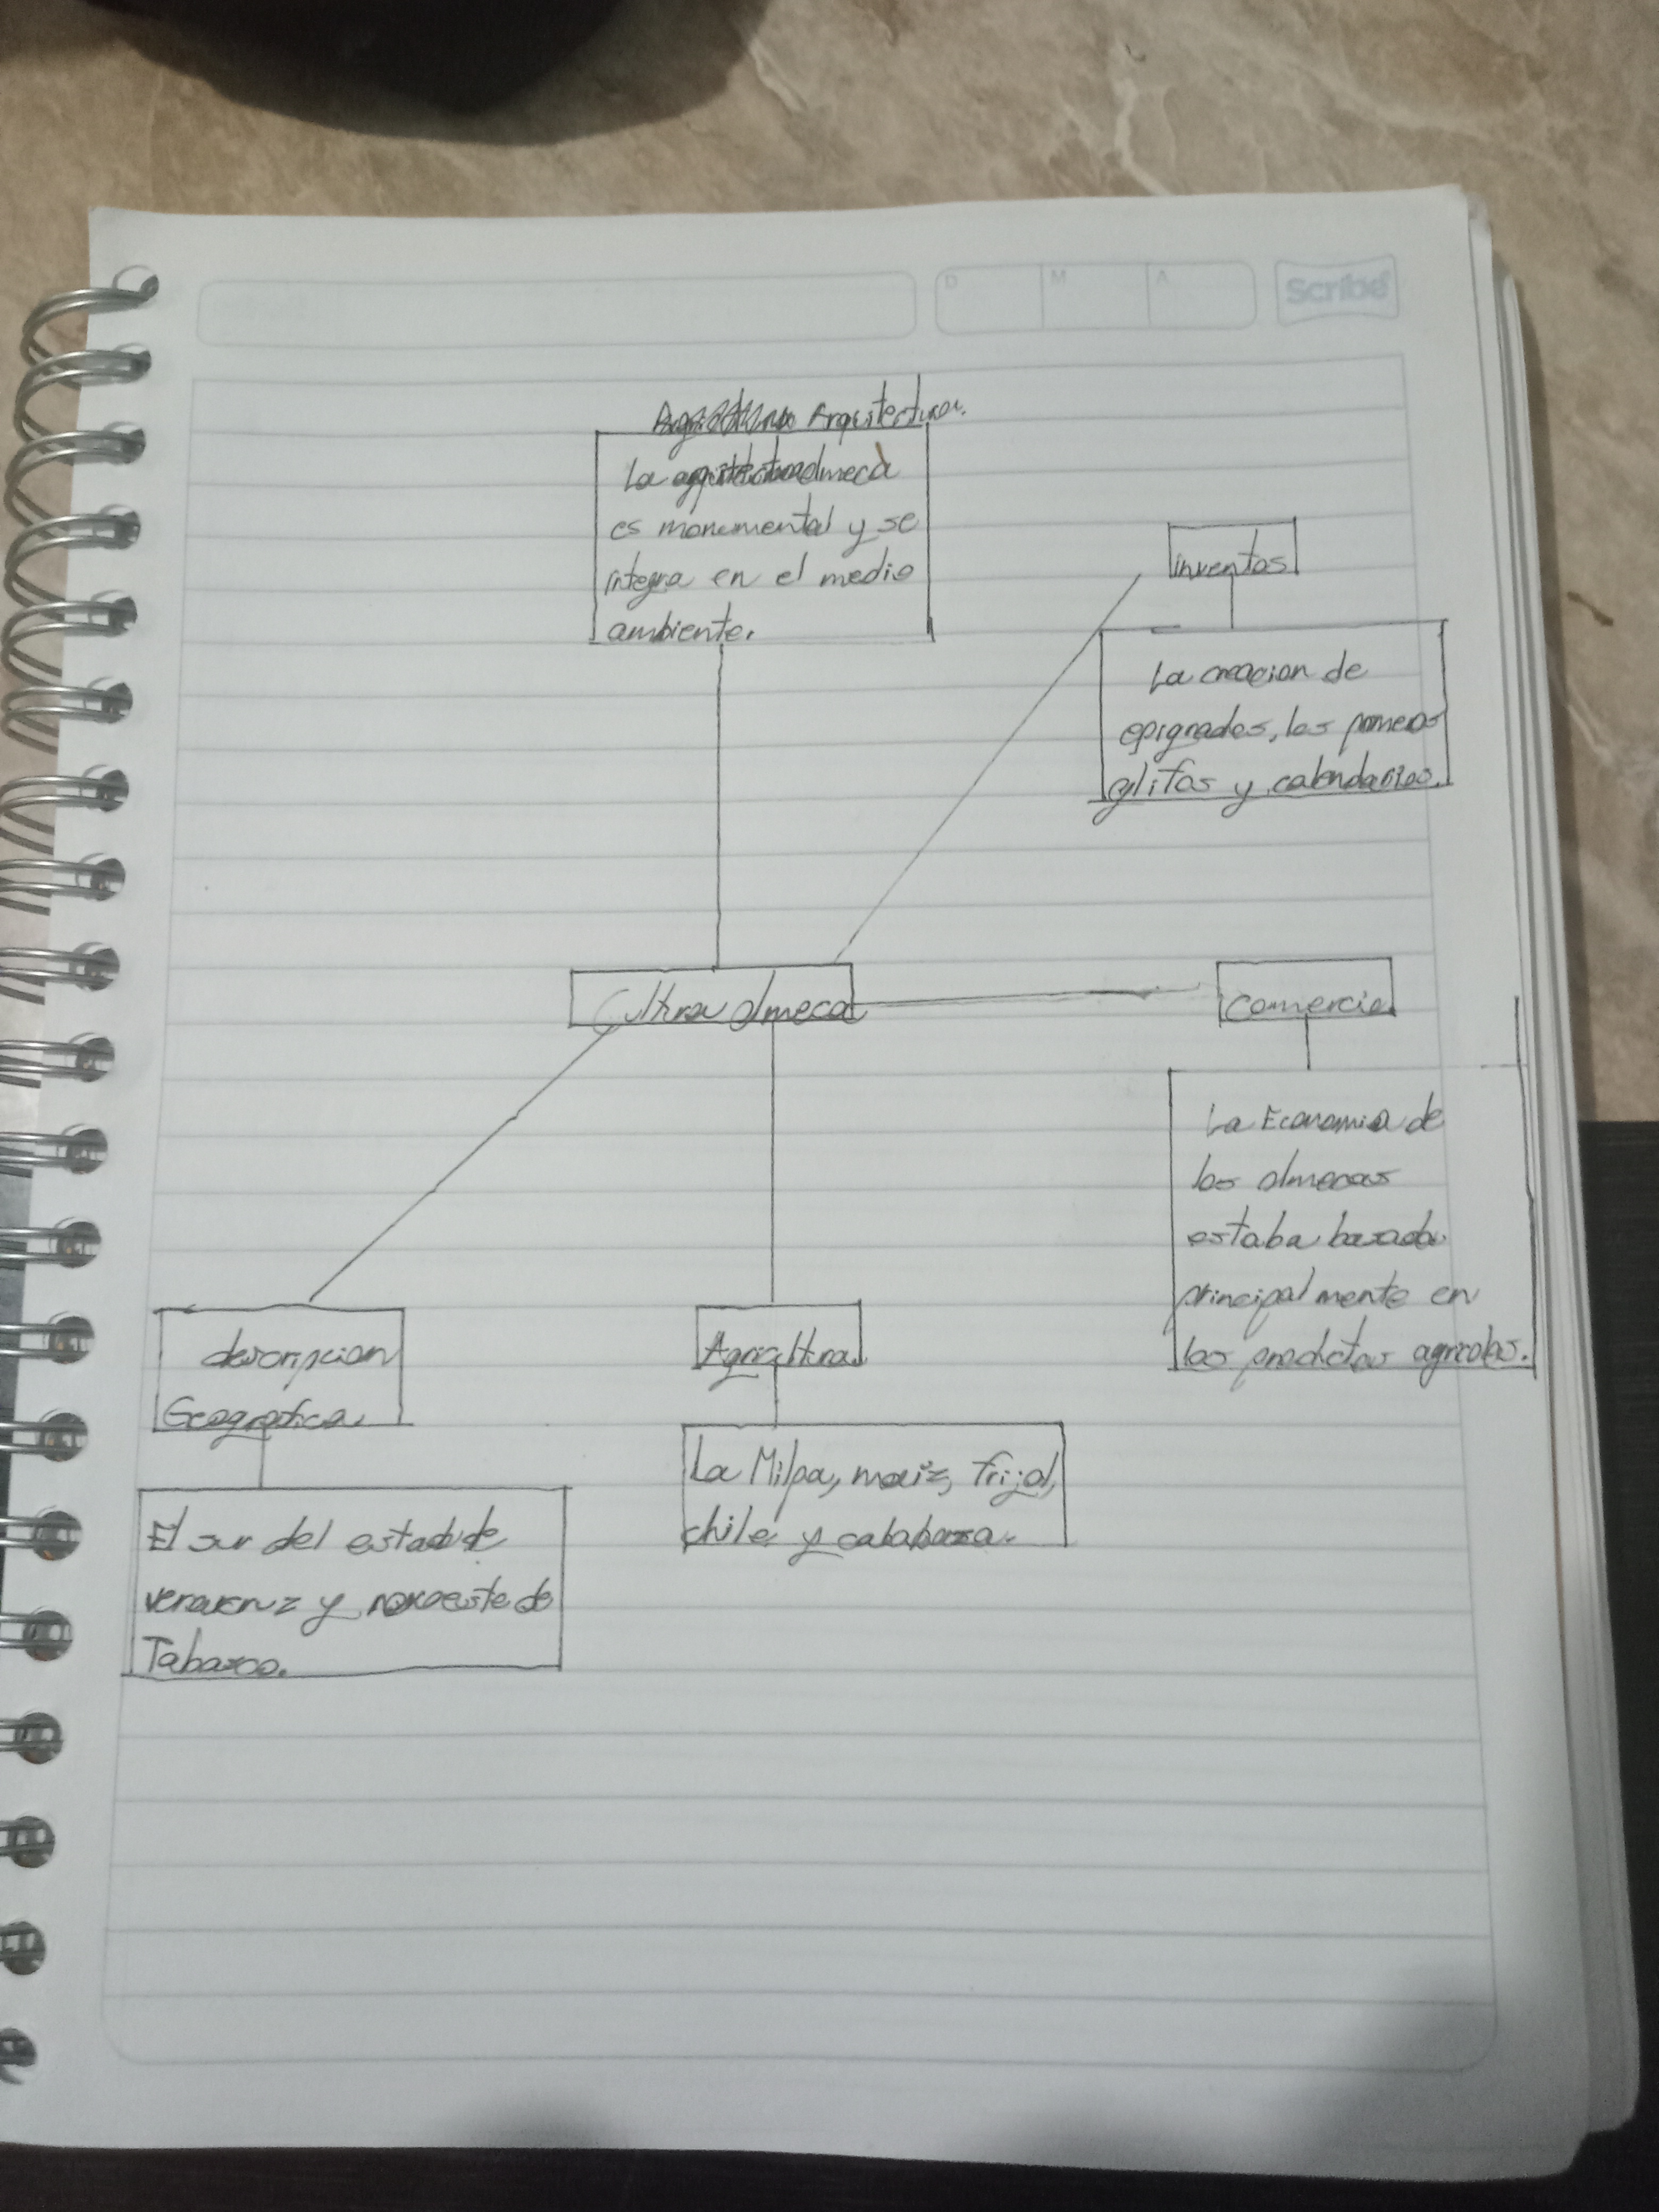 D M A Scribe
Arquitectura.
La olmeca
es monumental y se
integra en el medio
ambiente.
inventos
La creacion de
epignados, los primeros
glifos y calendarios.
Cultura olmeca
Comercio
La Economia de
los olmecas
estaba basada
principalmente en
los productos agricolas.
descripcion
Geografica.
Agricultura
La Milpa, maiz, frijol,
chile y calabaza.
El sur del estado de
veracruz y noroeste de
Tabasco.